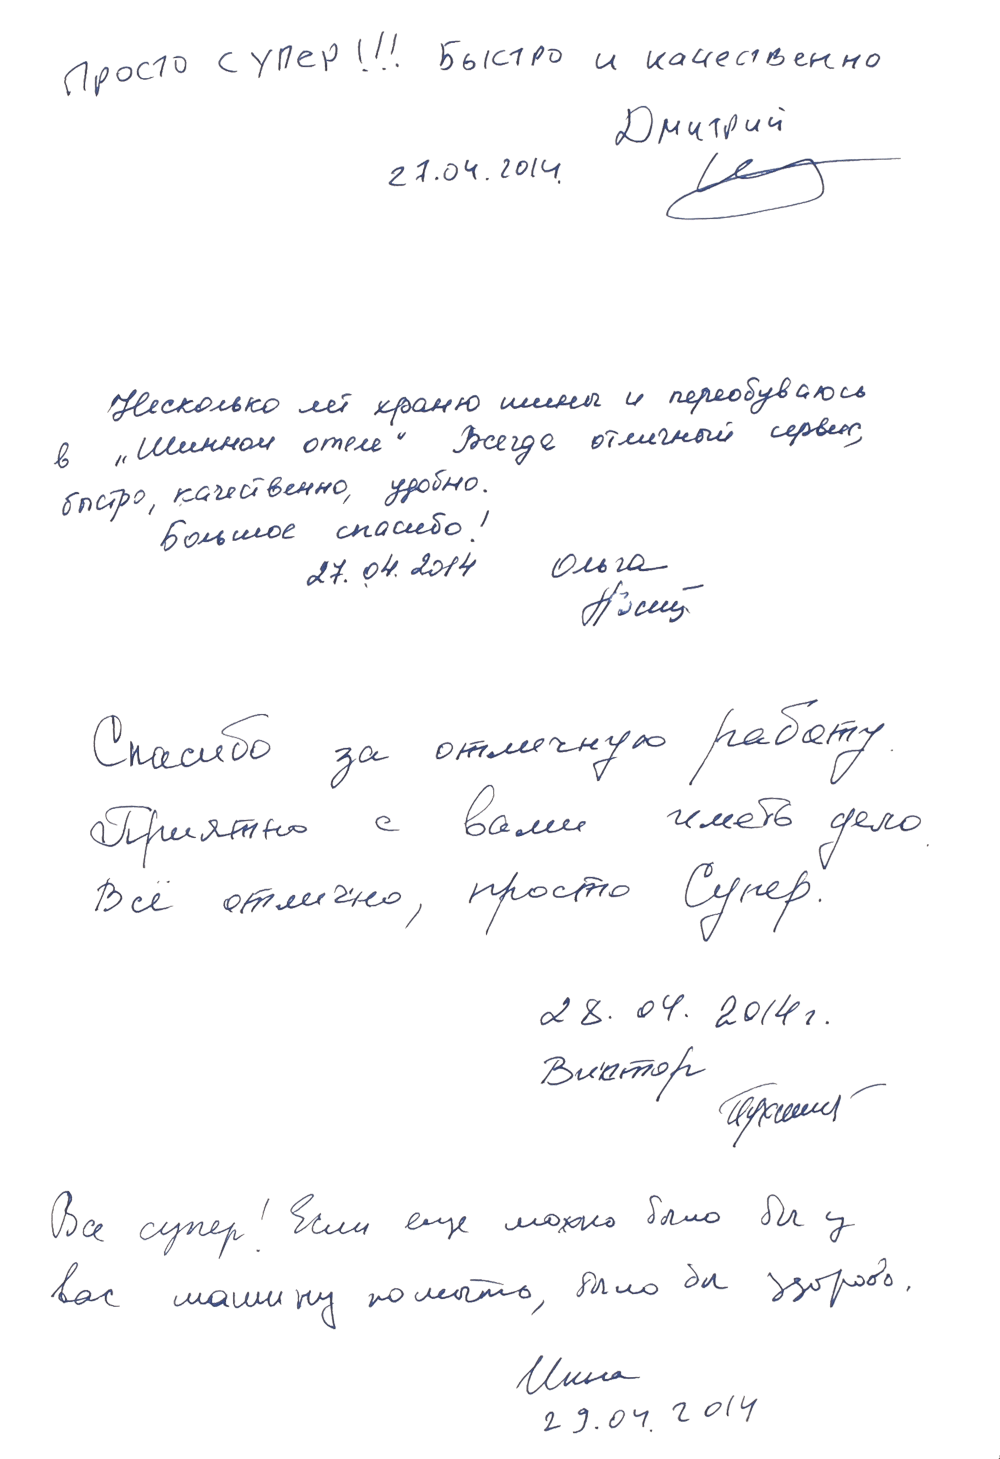 Просто супер!!! Быстро и качественно
Дмитрий
27.04.2014.
Несколько лет храню шины и переобуваюсь
в „Шинном отеле“ Всегда отличный сервис,
быстро, качественно, удобно.
Большое спасибо!
27.04.2014 Ольга
Спасибо за отличную работу.
Приятно с вами иметь дело.
Всё отлично, просто Супер.
28.04.2014г.
Виктор
Все супер! Если еще можно было бы у
вас машину помыть, было бы здорово.
Инна
29.04.2014